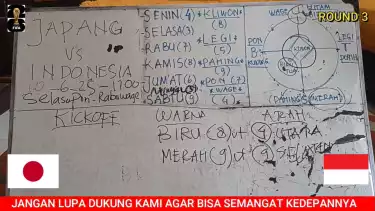 ROUND 3
JAPANG
VS
INDONESIA
10-6-25-1900
SelasaPon-Rabuwage
SENIN(4)
SELASA(3)
RABU(7)
KAMIS(8)
JUMAT(6)
SABTU(9)
*KLIWON*
(8)
*LEGI*
(5)
*PAHING*
(9)
*PON (7)
*WAGE*
(4)
WAGE
UTARA
PON
B
LEGI
T
KLIWON
KICKOFF
WARNA
ARAH
BIRU (8)
UTARA
MERAH (9)
SELATAN
JANGAN LUPA DUKUNG KAMI AGAR BISA SEMANGAT KEDEPANNYA